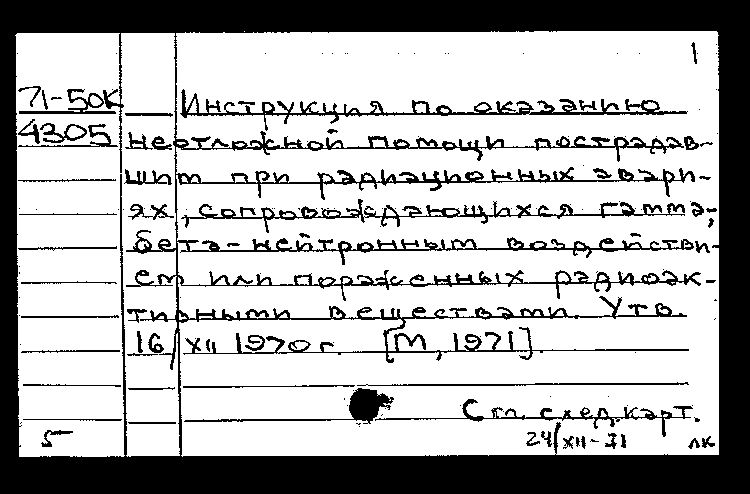 1
71-50К
4305
Инструкция по оказанию
неотложной помощи пострадав-
шим при радиационных авари-
ях, сопровождающихся гамма,
бета-нейтронным воздействи-
ем или пораженных радиоак-
тивными веществами. Утв.
16/XII 1970 г. [М, 1971].
См. след. карт.
5
24/XII-71 лк